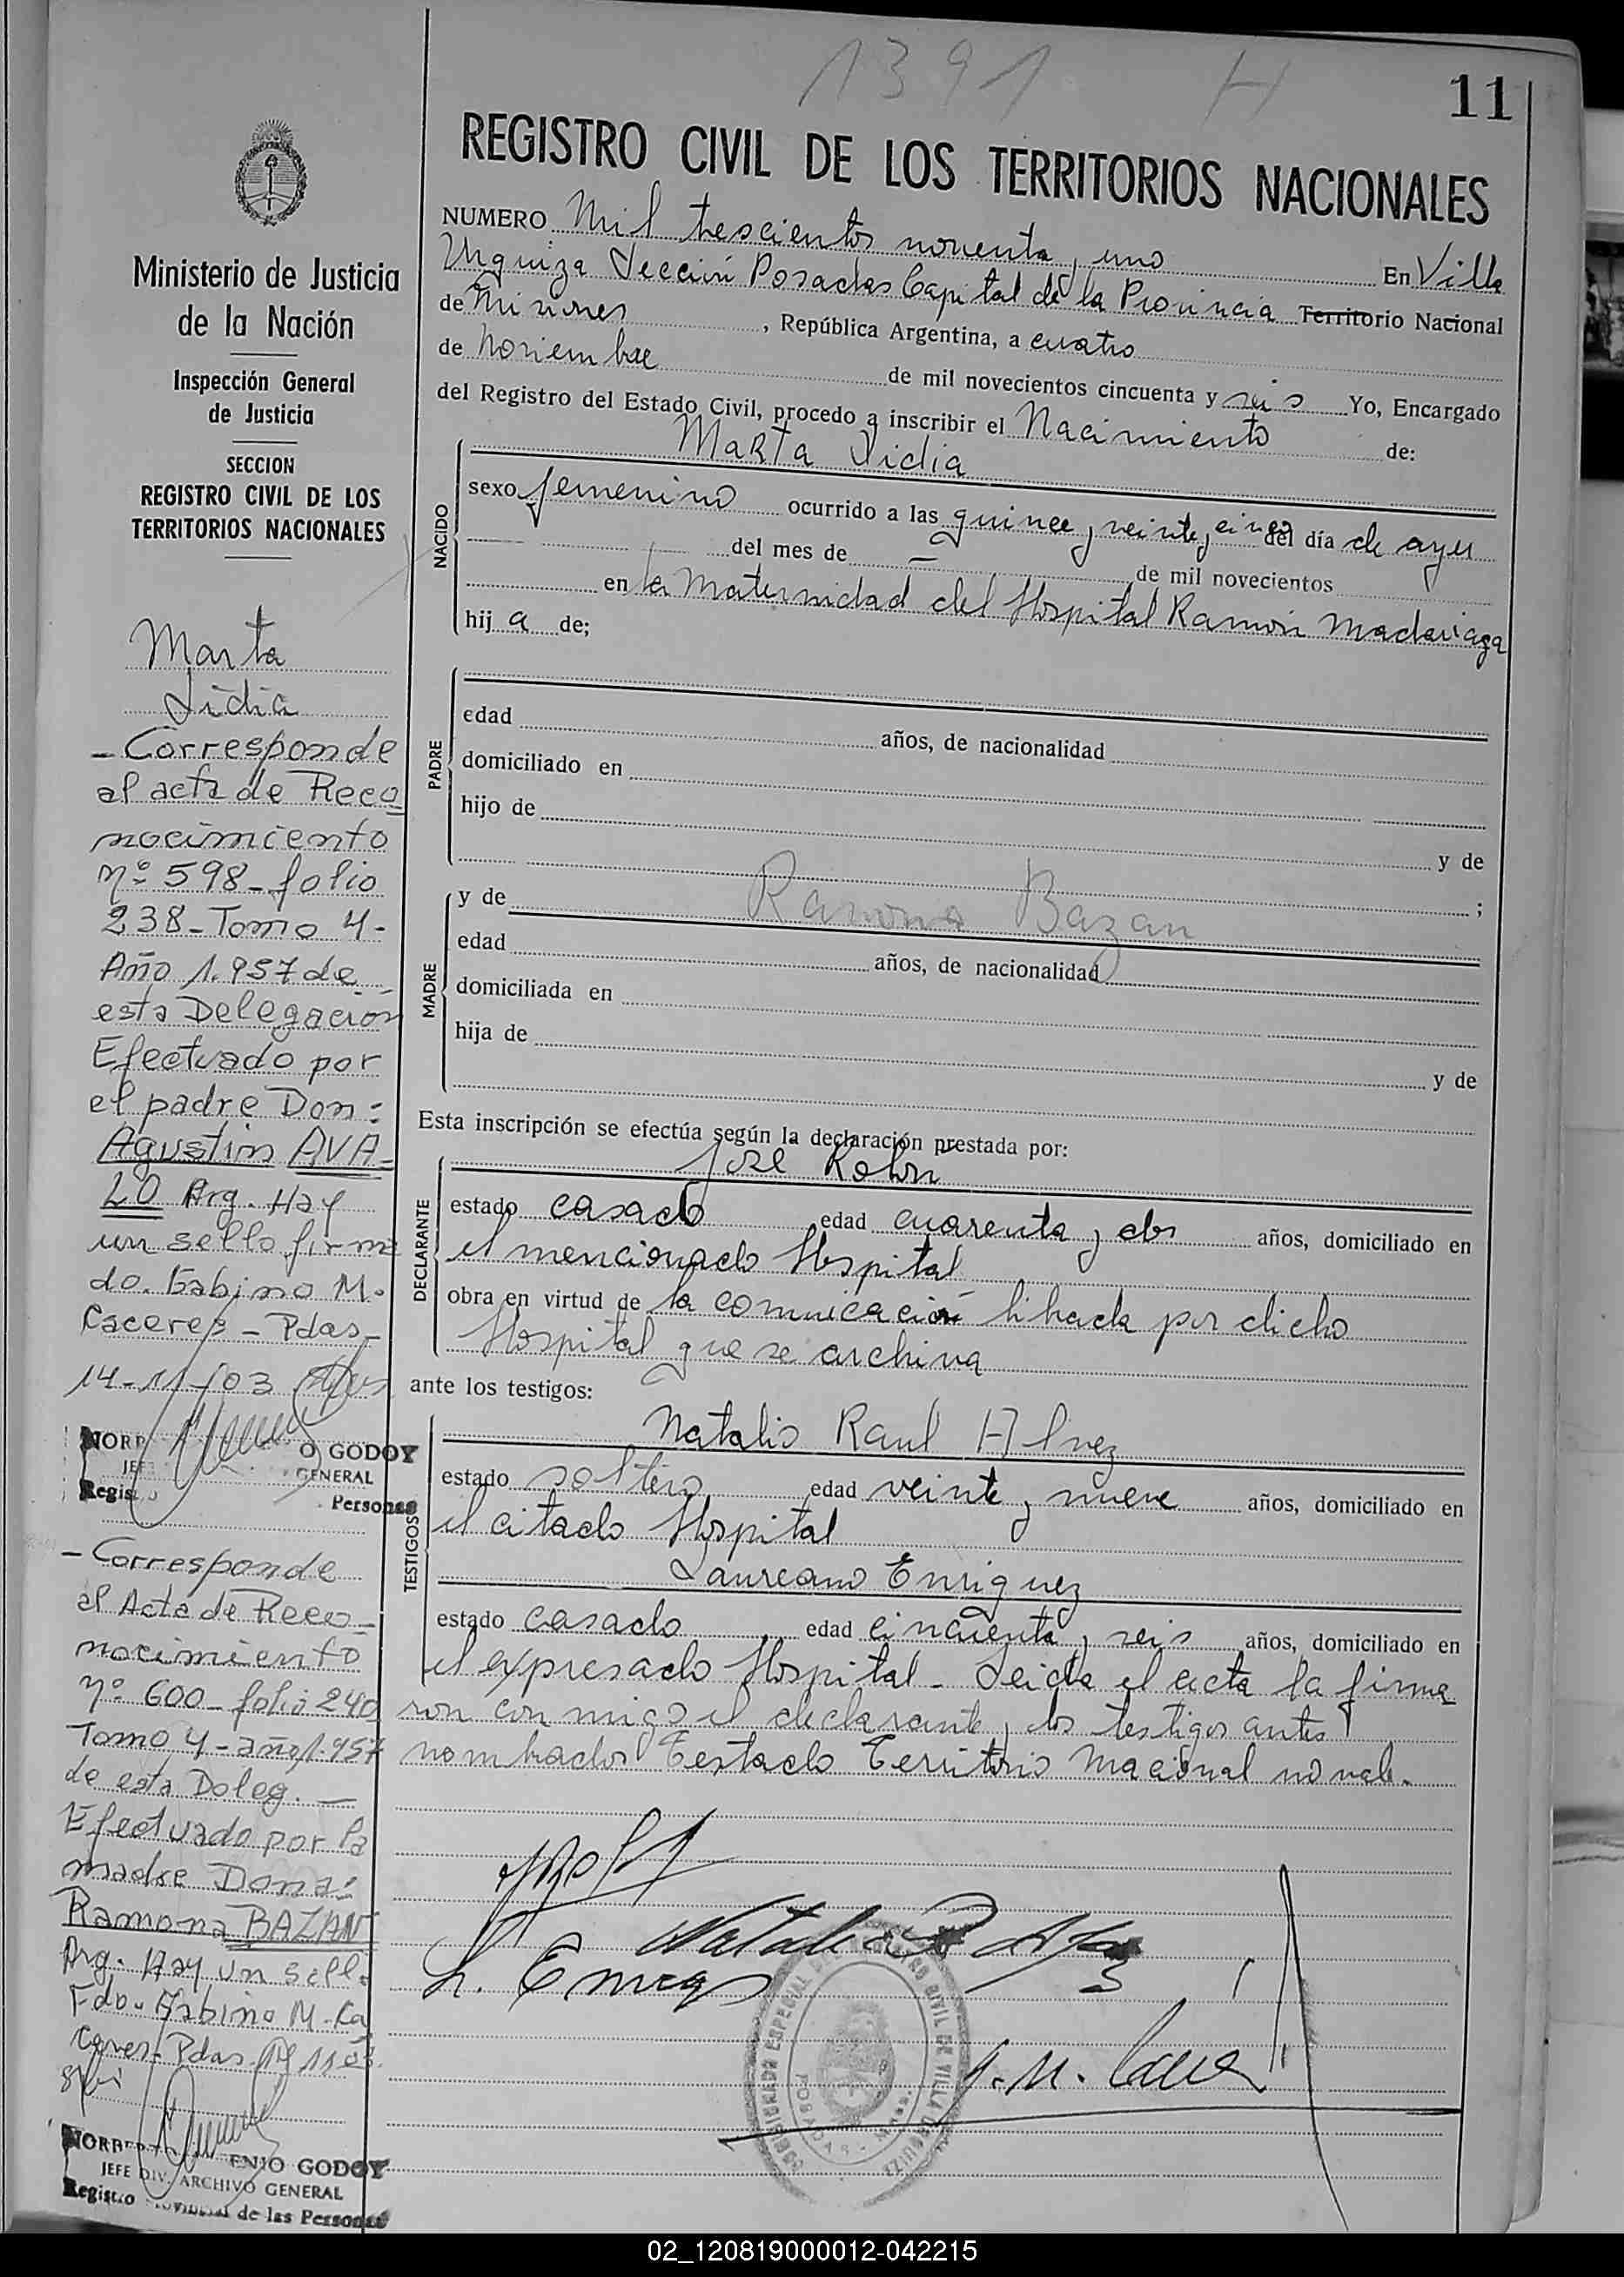 1391 H
11
REGISTRO CIVIL DE LOS TERRITORIOS NACIONALES
NUMERO Mil trescientos noventa y uno En Villa
Urquiza Sección Posadas Capital de la Provincia Territorio Nacional
de Misiones, República Argentina, a cuatro
de Noviembre de mil novecientos cincuenta y seis Yo, Encargado
del Registro del Estado Civil, procedo a inscribir el Nacimiento de:
Marta Lidia
NACIDO
sexo femenino ocurrido a las quince y veinte y cinco del día de ayer
del mes de — de mil novecientos
en la Maternidad del Hospital Ramón Madariaga
hij a de;
PADRE
edad años, de nacionalidad
domiciliado en
hijo de
y de
;
MADRE
y de Ramona Bazan
edad años, de nacionalidad
domiciliada en
hija de
y de
Esta inscripción se efectúa según la declaración prestada por:
José Rolón
DECLARANTE
estado casado edad cuarenta y dos años, domiciliado en
el mencionado Hospital
obra en virtud de la comunicación librada por dicho
Hospital que se archiva
ante los testigos:
TESTIGOS
Natalio Raul Alvez
estado soltero edad veinte y nueve años, domiciliado en
el citado Hospital
Laureano Enriquez
estado casado edad cincuenta y seis años, domiciliado en
el expresado Hospital - Leida el acta la firma
ron con migo el declarante y los testigos antes
nombrados Testado Territorio Nacional no vale.
L. Enriq
G. M. Cace
POSADAS
Ministerio de Justicia
de la Nación
Inspección General
de Justicia
SECCION
REGISTRO CIVIL DE LOS
TERRITORIOS NACIONALES
Marta
Lidia
- Corresponde
al acta de Reco
nocimiento
nº 598 - folio
238 - Tomo 4 -
Año 1.957 de
esta Delegación
Efectuado por
el padre Don:
Agustin AVA-
LO Arg. Hay
un sello firma
do. Gabino M.
Caceres - Pdas -
14-11-03
NORB O GODOY
JEFE GENERAL
Regis Personas
- Corresponde
al Acta de Reco-
nocimiento
nº 600 - folio 240
Tomo 4 - año 1.957
de esta Deleg. —
Efectuado por la
madre Dona:
Ramona BAZAN
Arg. Hay un sello
Fdo. Gabino M. Ca
ceres - Pdas. 14 11 03.
NORBERTO ENIO GODOY
JEFE DIV. ARCHIVO GENERAL
Registro Provincial de las Personas
02_120819000012-042215